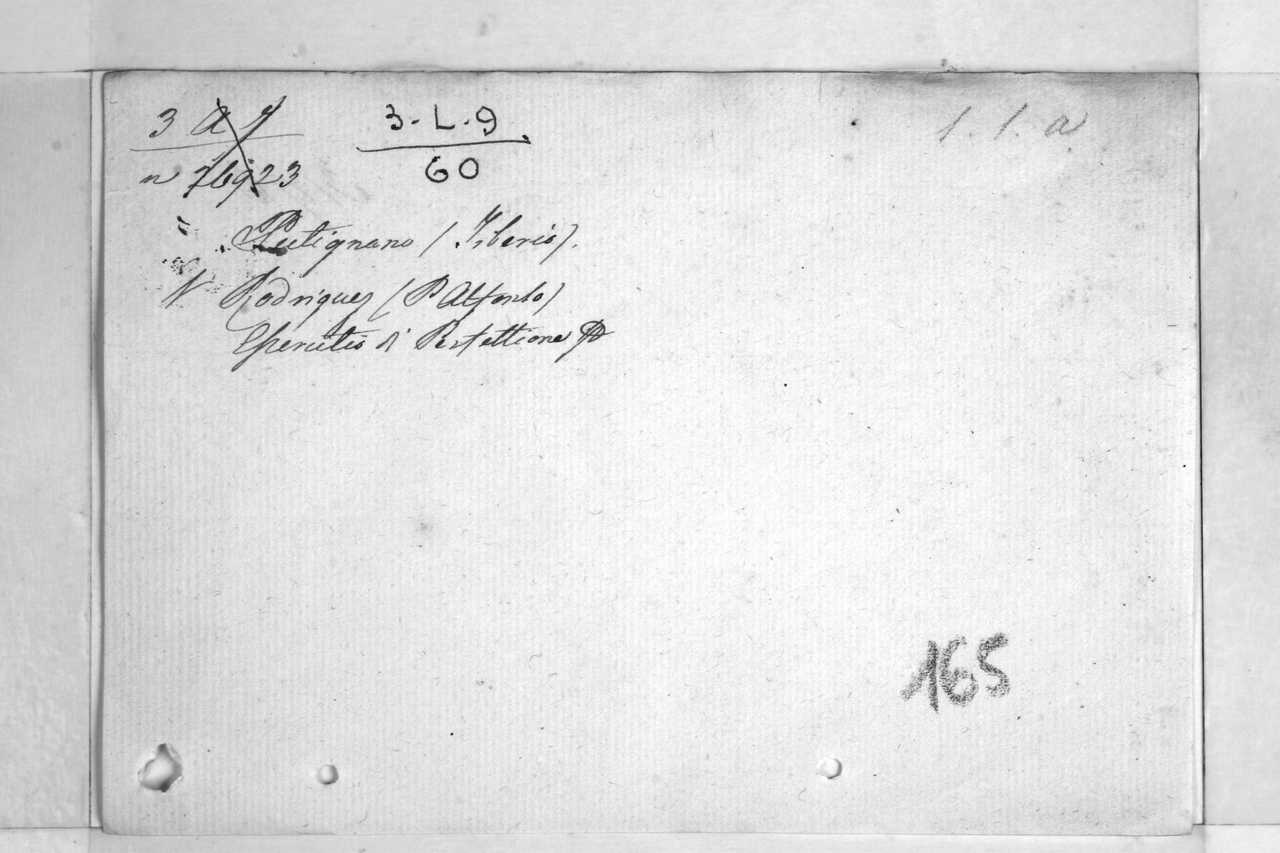 3 A 7
n 76923
3-L-9
60
1. 1. a
" Putignano (Tiberio).
N Rodriguez (P. Alfonso)
Esercitio di Perfettione
165